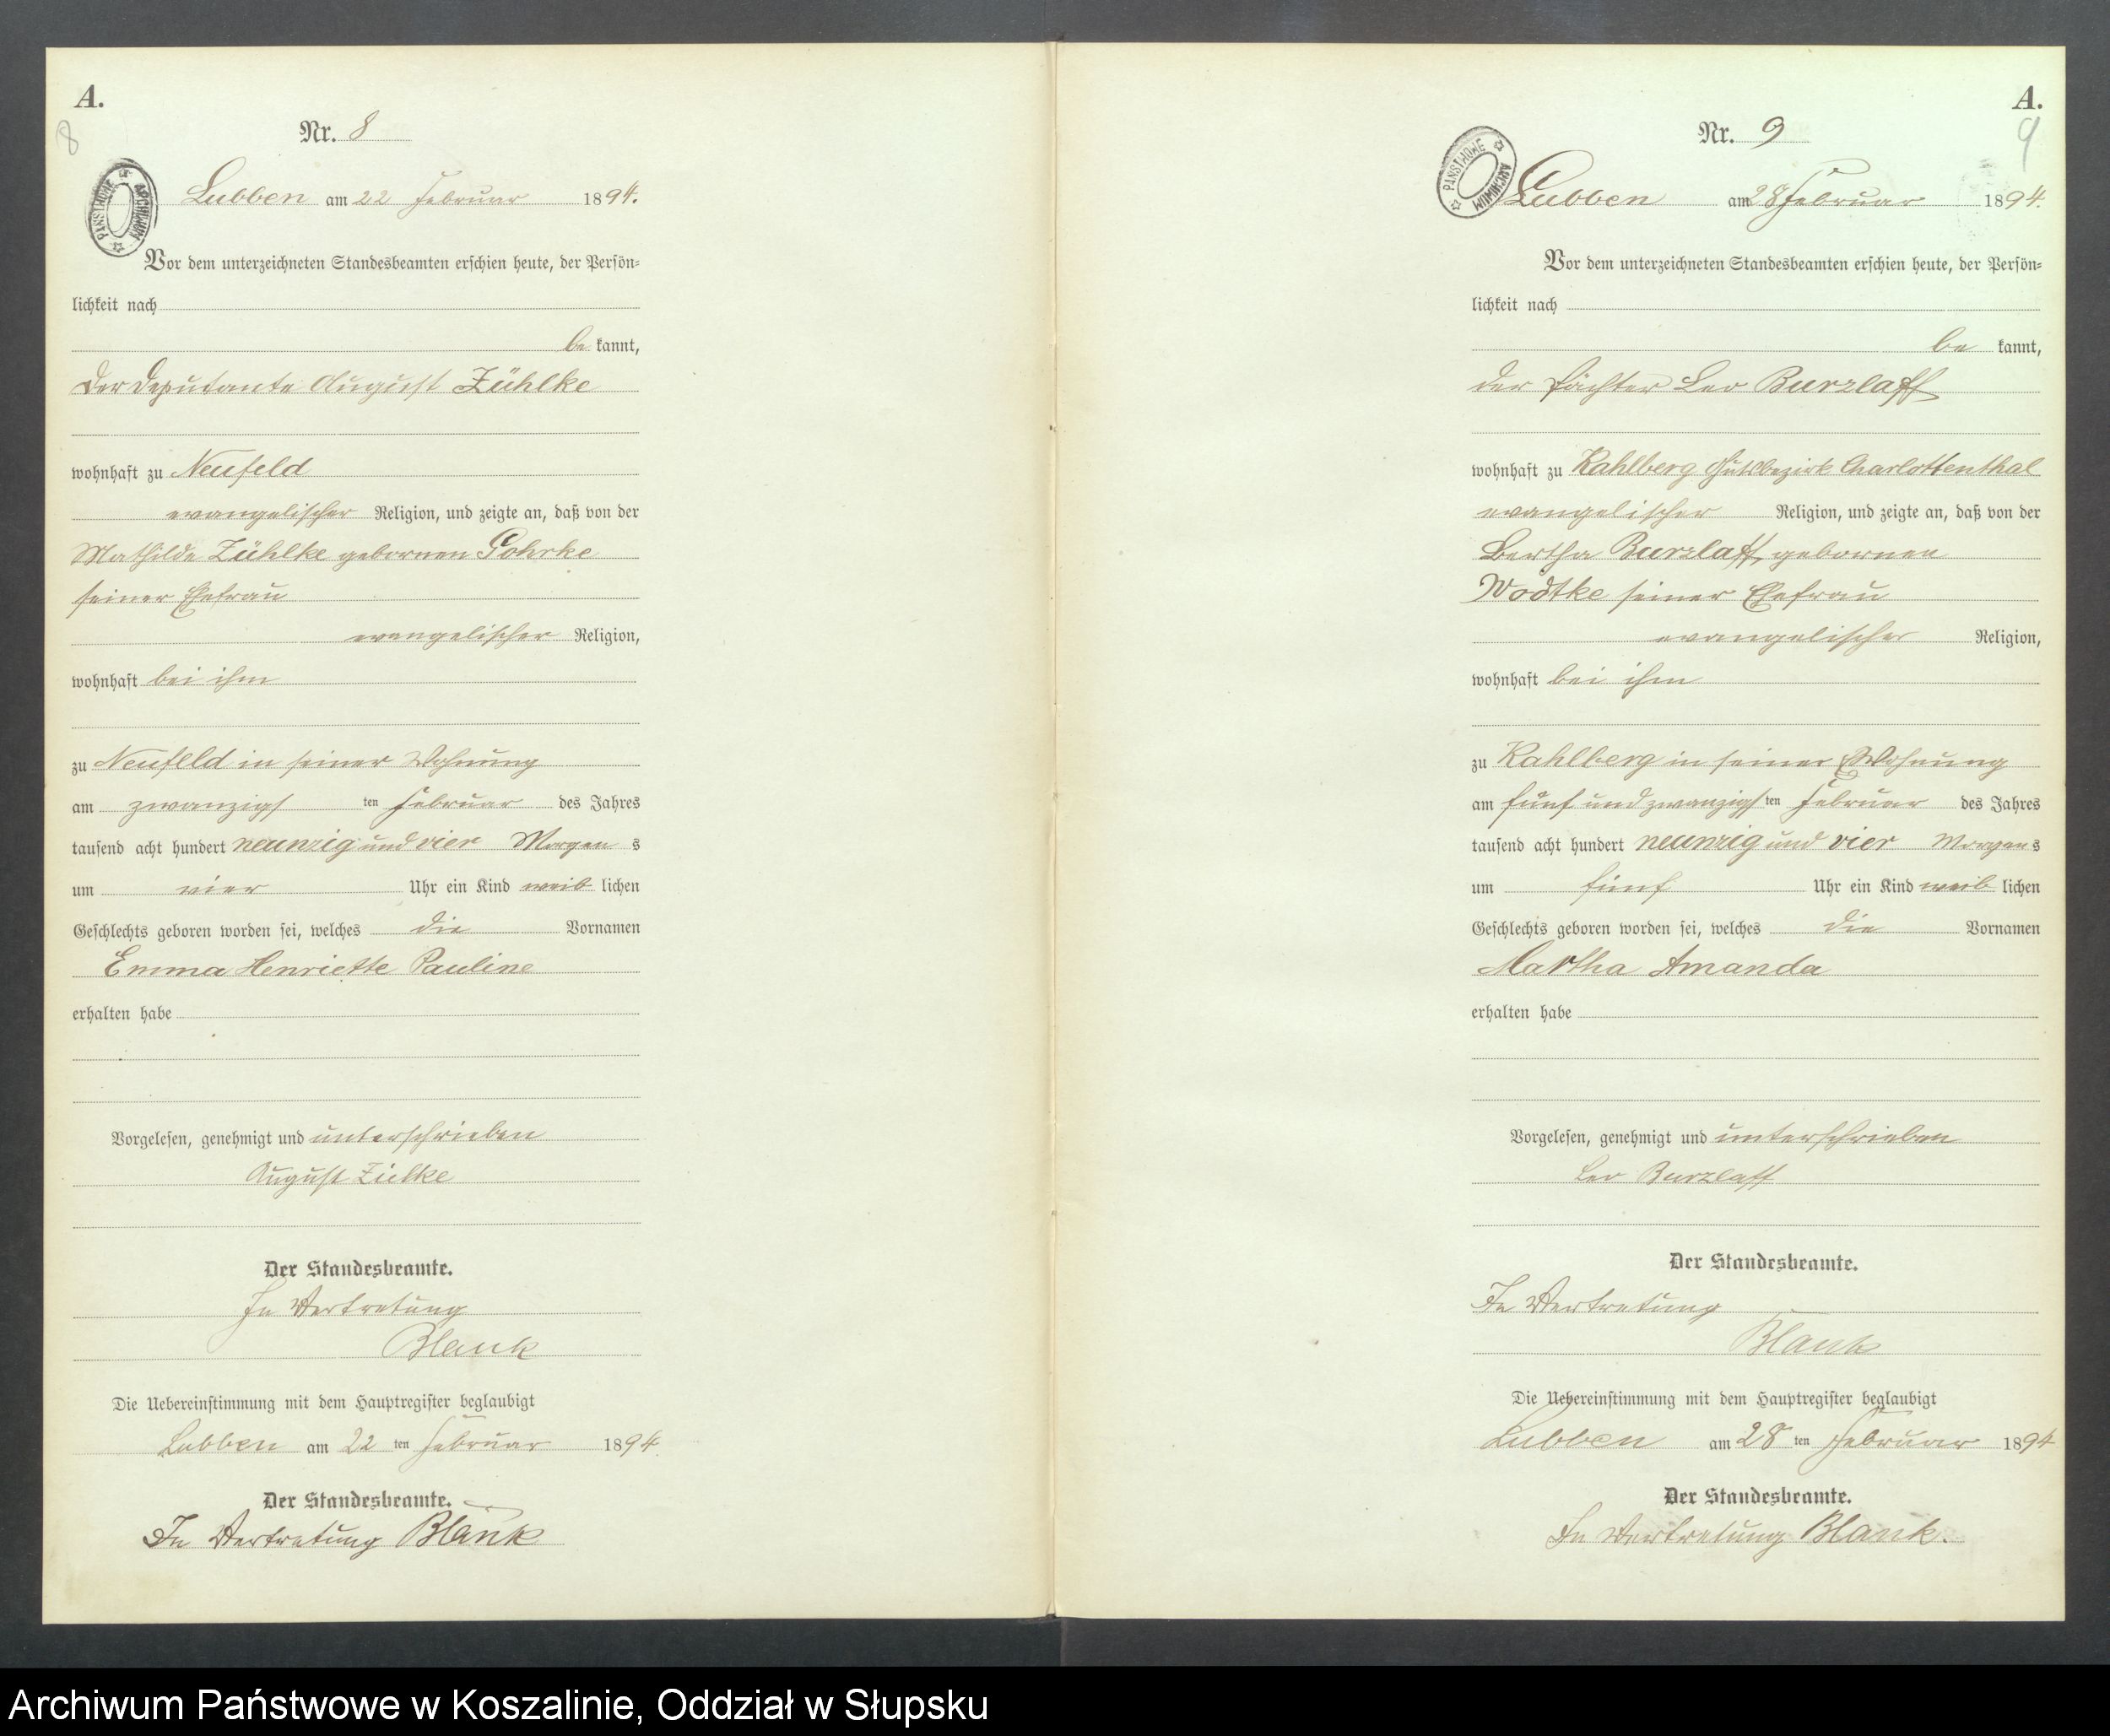 A.
8
Nr. 8
PAŃSTWOWE ARCHIWUM
Lubben am 22 Februar 1894.
Vor dem unterzeichneten Standesbeamten erschien heute, der Persön-
lichkeit nach
be kannt,
der Deputante August Zühlke
wohnhaft zu Neufeld
evangelischer Religion, und zeigte an, daß von der
Mathilde Zühlke gebornen Gohrke
seiner Ehefrau
evangelischer Religion,
wohnhaft bei ihm
zu Neufeld in seiner Wohnung
am zwanzigs ten Februar des Jahres
tausend acht hundert neunzig und vier Morgen s
um vier Uhr ein Kind weib lichen
Geschlechts geboren worden sei, welches die Vornamen
Emma Henriette Pauline
erhalten habe
Vorgelesen, genehmigt und unterschrieben
August Zielke
Der Standesbeamte.
In Vertretung
Blank
Die Uebereinstimmung mit dem Hauptregister beglaubigt
Lubben am 22 ten Februar 1894.
Der Standesbeamte.
In Vertretung Blank
A.
9
Nr. 9
PAŃSTWOWE ARCHIWUM
Lubben am 28 Februar 1894.
Vor dem unterzeichneten Standesbeamten erschien heute, der Persön-
lichkeit nach
be kannt,
der Pächter Leo Burzlaff
wohnhaft zu Kahlberg Gutsbezirk Charlottenthal
evangelischer Religion, und zeigte an, daß von der
Bertha Burzlaff, gebornen
Wodtke seiner Ehefrau
evangelischer Religion,
wohnhaft bei ihm
zu Kahlberg in seiner Wohnung
am fünf und zwanzigs ten Februar des Jahres
tausend acht hundert neunzig und vier Morgen s
um fünf Uhr ein Kind weib lichen
Geschlechts geboren worden sei, welches die Vornamen
Martha Amanda
erhalten habe
Vorgelesen, genehmigt und unterschrieben
Leo Burzlaff
Der Standesbeamte.
In Vertretung
Blank
Die Uebereinstimmung mit dem Hauptregister beglaubigt
Lubben am 28 ten Februar 1894
Der Standesbeamte.
In Vertretung Blank.
Archiwum Państwowe w Koszalinie, Oddział w Słupsku